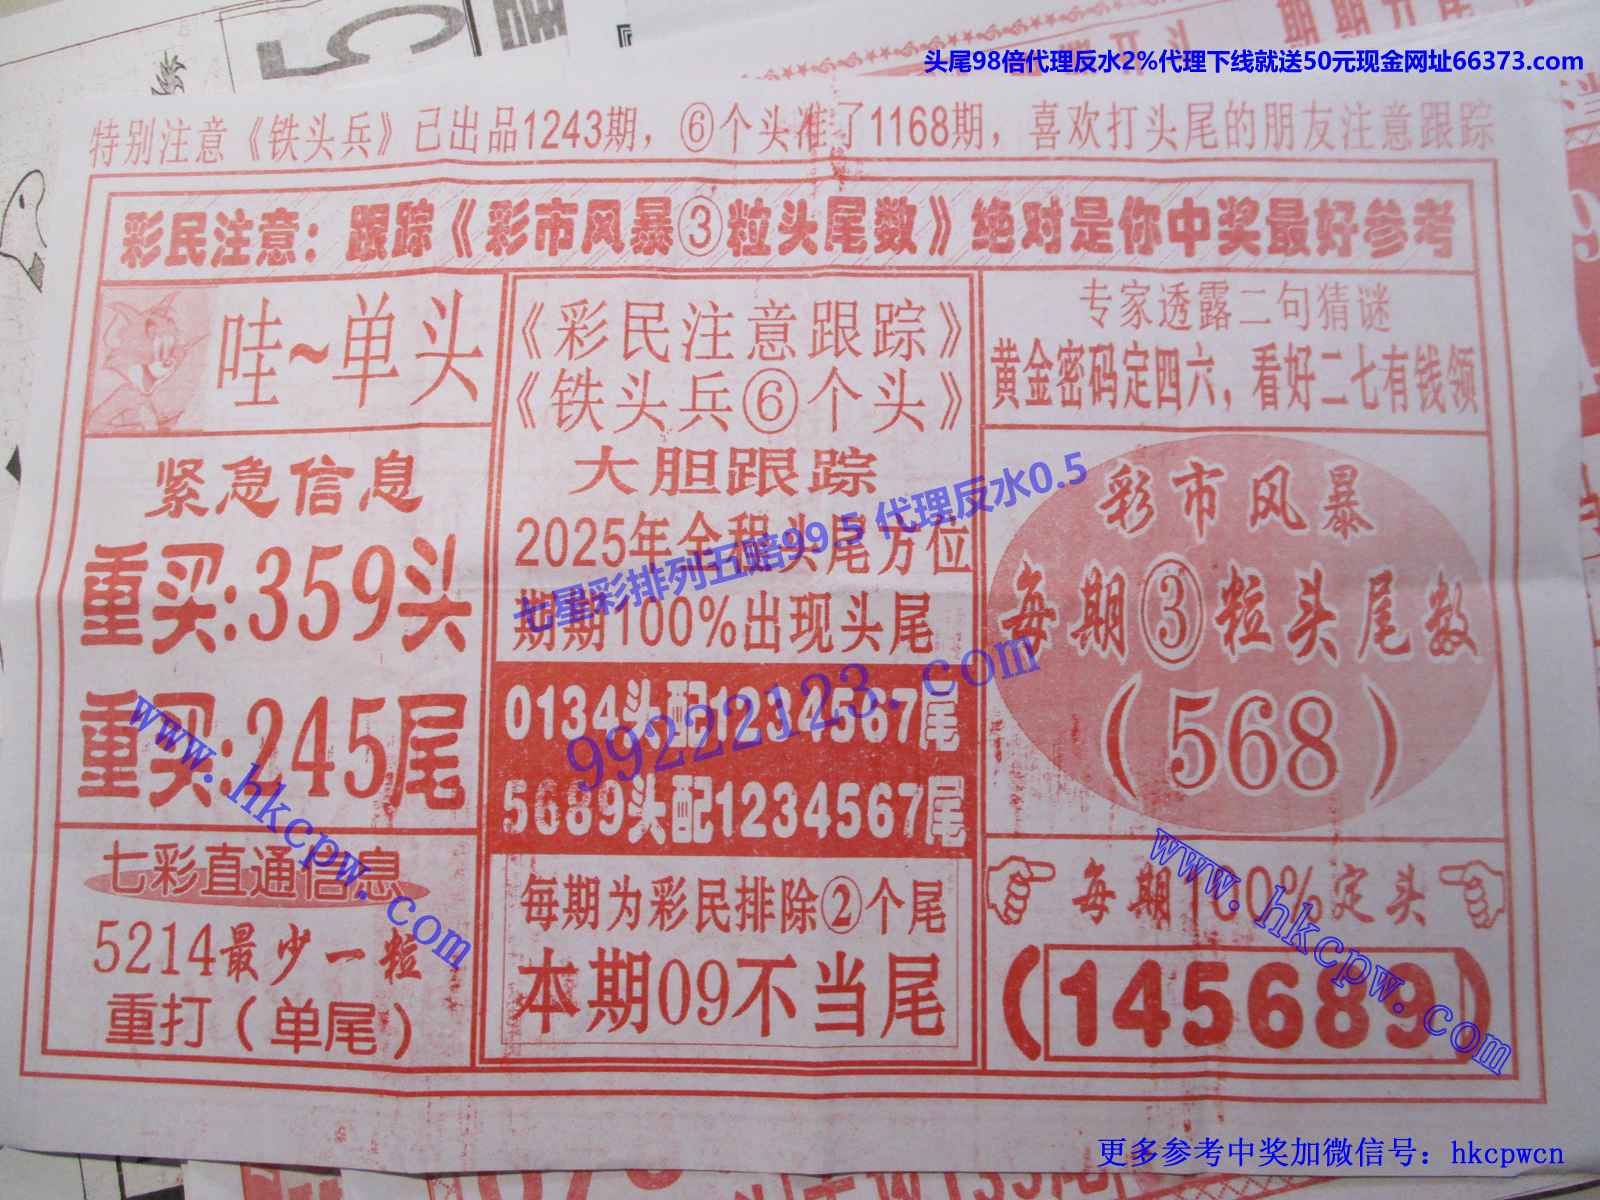 头尾98倍代理反水2%代理下线就送50元现金网址66373.com
特别注意《铁头兵》已出品1243期，⑥个头准了1168期，喜欢打头尾的朋友注意跟踪
彩民注意：跟踪《彩市风暴③粒头尾数》绝对是你中奖最好参考
哇~单头
紧急信息
重买:359头
重买:245尾
七彩直通信息
5214最少一粒
重打（单尾）
《彩民注意跟踪》
《铁头兵⑥个头》
大胆跟踪
2025年全程头尾方位
期期100%出现头尾
0134头配1234567尾
5689头配1234567尾
每期为彩民排除②个尾
本期09不当尾
专家透露二句猜谜
黄金密码定四六，看好二七有钱领
彩市风暴
每期③粒头尾数
（568）
每期100%定头
（145689）
七星彩排列五赔99.5 代理反水0.5
99222123.com
www.hkcpw.com
www.hkcpw.com
更多参考中奖加微信号：hkcpwcn